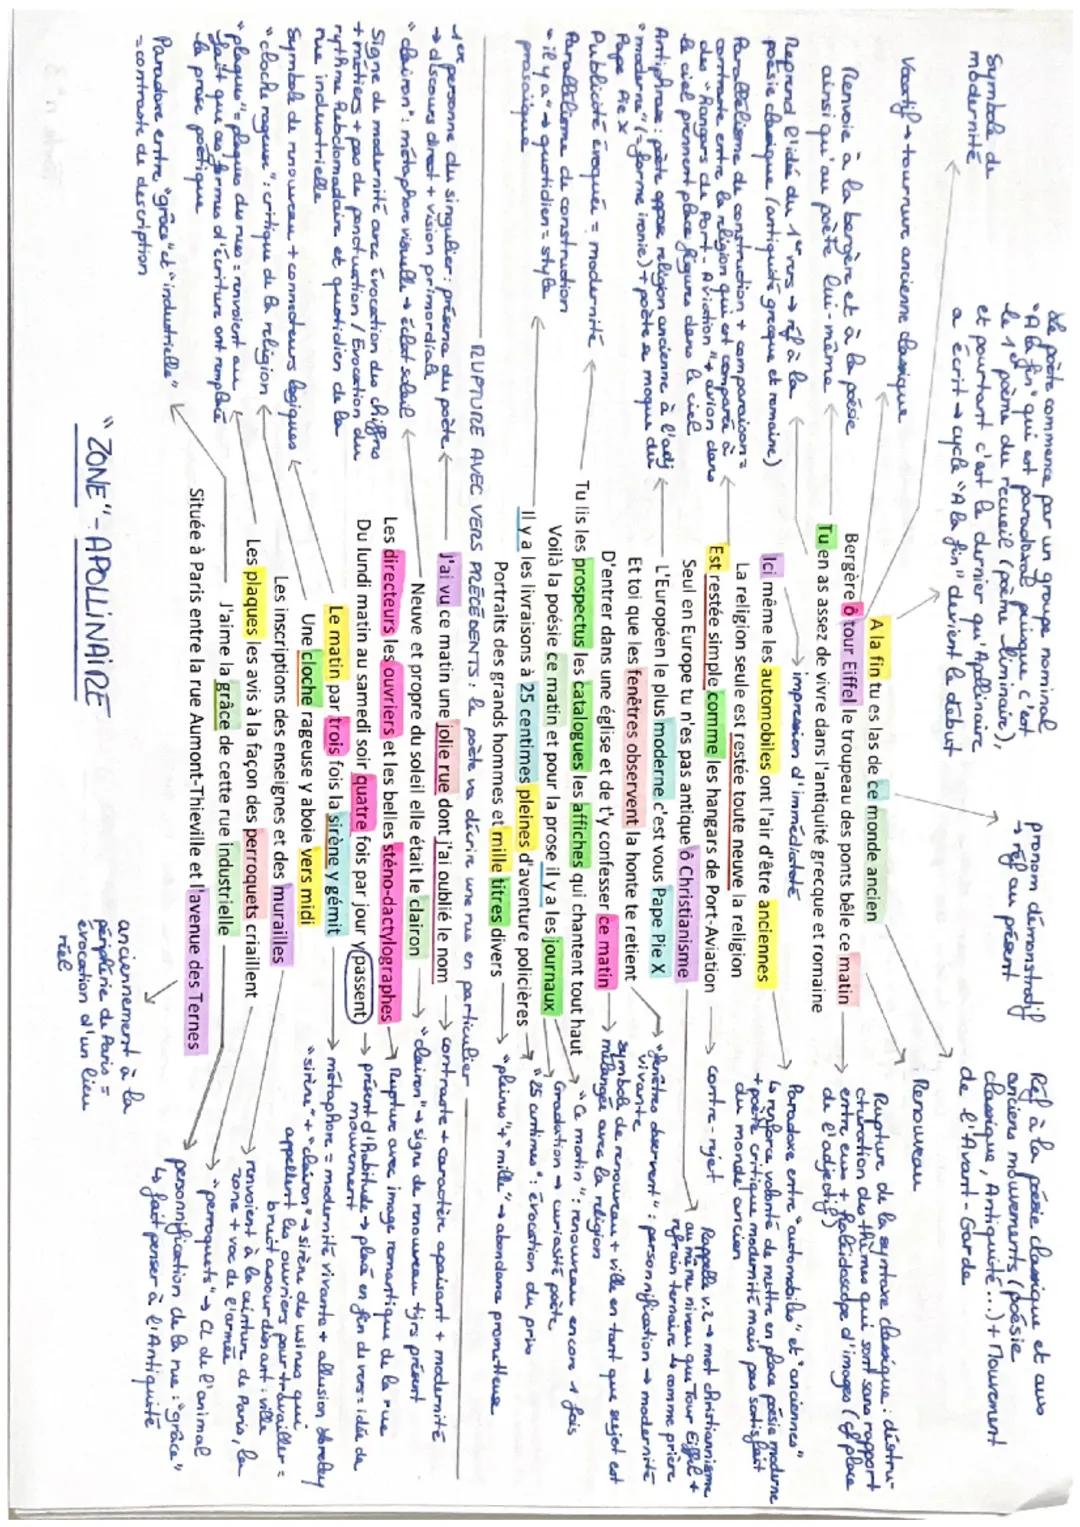 Le poète commence par un groupe nominal
"A la fin" qui est paradoxal puisque c'est
le 1er poème du recueil (poème liminaire),
et pourtant c'est le dernier qu'Apollinaire
a écrit → cycle "A la fin" devient le début
pronom démonstratif
→ réf au présent
Réf à la poésie classique et aux
anciens mouvements (poésie
classique, Antiquité...) + Mouvement
de l'Avant-Garde
Symbole de
modernité
Vocatif → tournure ancienne classique
Renvoie à la bergère et à la poésie
ainsi qu'au poète lui-même
Reprend l'idée du 1er vers → réf à la
poésie classique (antiquité grecque et romaine)
Parallélisme de construction + comparaison =
contraste entre la religion qui est comparée à
des "Hangars de Port-Aviation" + avion dans
le ciel prennent place figure dans le ciel
Antiphrase : poète oppose religion ancienne à l'adj
"moderne" (= forme ironie) + poète se moque du
Pape Pie X
Publicité évoquée = modernité
Parallélisme de construction
"il y a" → quotidien = style
prosaïque
A la fin tu es las de ce monde ancien
Bergère ô tour Eiffel le troupeau des ponts bêle ce matin
Tu en as assez de vivre dans l'antiquité grecque et romaine
→ impression d'immédiateté
Ici même les automobiles ont l'air d'être anciennes
La religion seule est restée toute neuve la religion
Est restée simple comme les hangars de Port-Aviation
Seul en Europe tu n'es pas antique ô Christianisme
L'Européen le plus moderne c'est vous Pape Pie X
Et toi que les fenêtres observent la honte te retient
D'entrer dans une église et de t'y confesser ce matin
Tu lis les prospectus les catalogues les affiches qui chantent tout haut
Voilà la poésie ce matin et pour la prose il y a les journaux
Il y a les livraisons à 25 centimes pleines d'aventure policières
Portraits des grands hommes et mille titres divers
Renouveau
Rupture de la syntaxe classique : destru-
cturation des thèmes qui sont sans rapport
entre eux + kaléidoscope d'images (cf place
de l'adjectif)
Paradoxe entre "automobiles" et "anciennes"
↳ renforce volonté de mettre en place poésie moderne
+ poète critique modernité mais pas satisfait
du monde ancien
contre-rejet
Rappelle v.2 → mot christianisme
au même niveau que Tour Eiffel +
refrain ternaire → comme prière
"fenêtres observent" : personnification → modernité
vivante
symbole de renouveau + ville en tant que sujet est
mélangée avec la religion
"Ce matin" : renouveau encore 1 fois
Gradation → curiosité poète
"25 centimes" : évocation du prix
"pleines" + "mille" → abondance prometteuse
RUPTURE AVEC VERS PRÉCÉDENTS : le poète va décrire une rue en particulier
1ère personne du singulier : présence du poète
→ discours direct + vision primordiale
"clairon" : métaphore visuelle → éclat soleil
Signe de modernité avec évocation des chiffres
+ métiers + pas de ponctuation / Evocation du
rythme hebdomadaire et quotidien de la
rue industrielle
Symbole de renouveau + connecteurs logiques
"cloche rageuse" : critique de la religion
"plaques" = plaques de rues : renvoient au
fait que ces formes d'écriture ont remplacé
la prose poétique
Paradoxe entre "grâce" et "industrielle"
= contraste de description
J'ai vu ce matin une jolie rue dont j'ai oublié le nom
Neuve et propre du soleil elle était le clairon
Les directeurs les ouvriers et les belles sténo-dactylographes
Du lundi matin au samedi soir quatre fois par jour y passent
Le matin par trois fois la sirène y gémit
Une cloche rageuse y aboie vers midi
Les inscriptions des enseignes et des murailles
Les plaques les avis à la façon des perroquets criaillent
J'aime la grâce de cette rue industrielle
Située à Paris entre la rue Aumont-Thieville et l'avenue des Ternes
contraste + caractère apaisant + modernité
"clairon" → signe de renouveau tjrs présent
Rupture avec image romantique de la rue
présent d'habitude → placé en fin de vers = idée de
mouvement
métaphore = modernité vivante +
"sirène" + "clairon" → sirène des usines qui
appellent les ouvriers pour travailler =
bruit assourdissant : ville
renvoient à la ceinture de Paris, la
zone + voc de l'armée
"perroquets" → CL de l'animal
personnification de la rue : "grâce"
↳ fait penser à l'Antiquité
anciennement à la
périphérie de Paris =
évocation d'un lieu
réel
"ZONE" - APOLLINAIRE